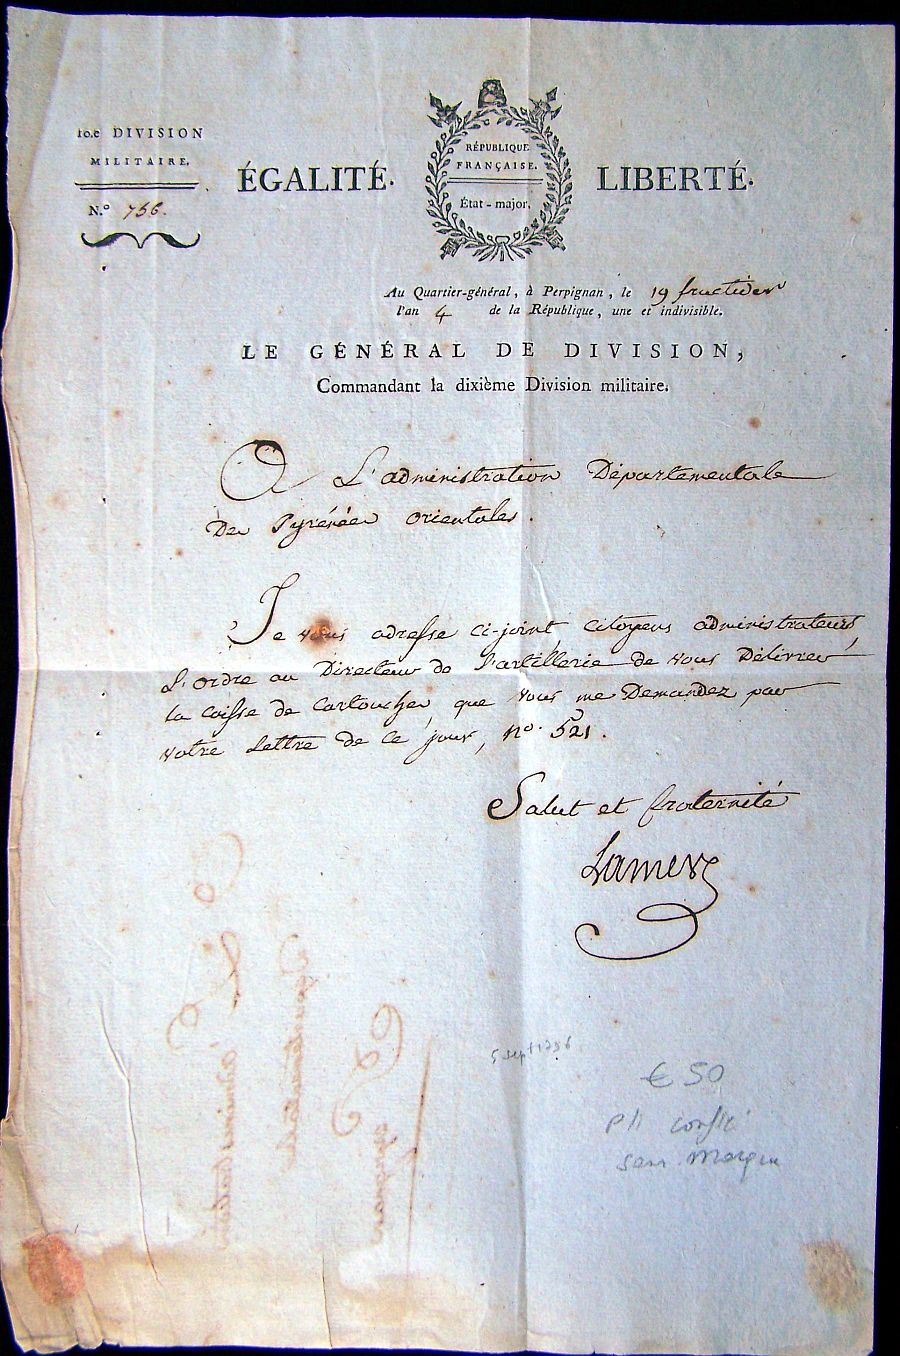 10.e DIVISION
MILITAIRE.
N.º 756.
ÉGALITÉ.
RÉPUBLIQUE
FRANÇAISE.
État-major.
LIBERTÉ.
Au Quartier-général, à Perpignan, le 19 fructidor
l'an 4 de la République, une et indivisible.
LE GÉNÉRAL DE DIVISION,
Commandant la dixième Division militaire.
A L'administration Départementale
Des Pyrénées orientales.
Je vous adresse ci-joint, citoyens administrateurs,
L'ordre au Directeur de l'artillerie de vous Délivrer
la Caisse de Cartouches que vous me Demandez par
votre Lettre de ce jour, nº. 521.
Salut et fraternité
Lamer
5 sept 1796
€ 50
sans